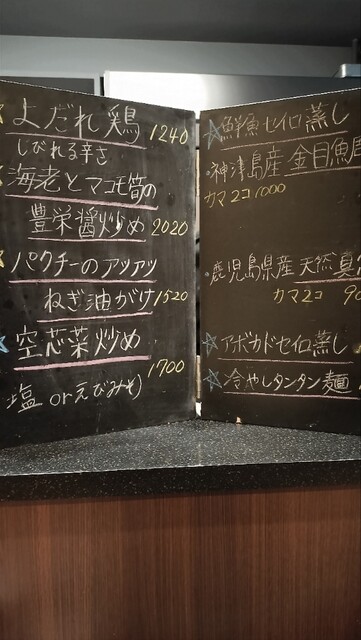 よだれ鶏 1240
しびれる辛さ
海老とマコモ筍の
豊栄醤炒め 2020
パクチーのアツアツ
ねぎ油がけ 1520
空芯菜炒め
1700
塩 orえびみそ)
☆鮮魚セイロ蒸し
・神津島産 金目魚
カマ2コ 1000
・鹿児島県産 天然真
カマ2コ 90
☆アボカドセイロ蒸し
☆冷やしタンタン麺